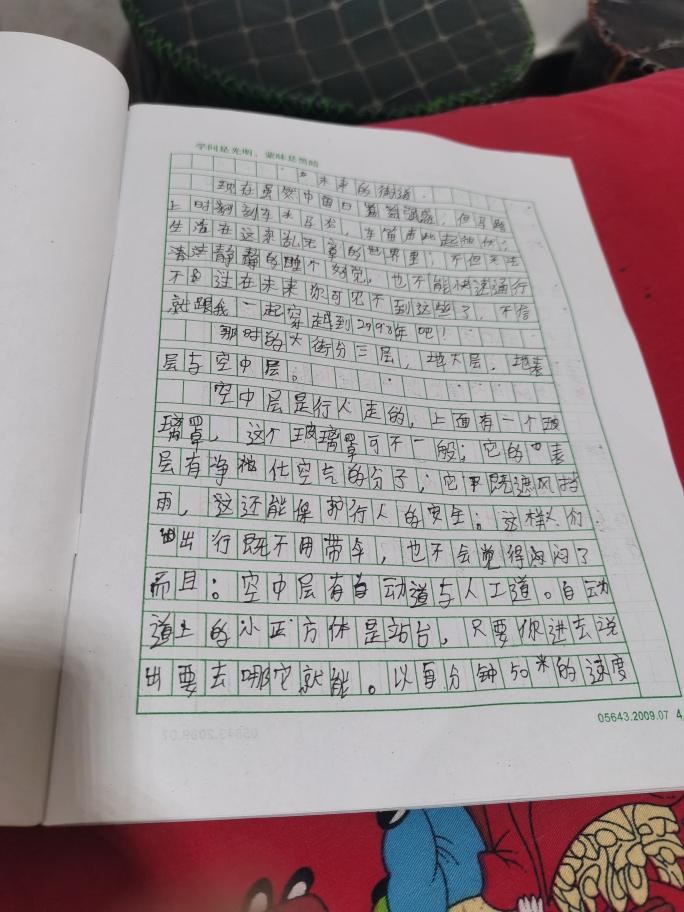 学问是光明，蒙昧是黑暗
未来的街道
现在虽然中国日益强盛，但马路
上时刻车水马龙，车笛声此起彼伏；
生活在这杂乱无章的世界里；不但无法
清清静静的睡个好觉，也不能快速通行
不过在未来你可见不到这些了，不信
就跟我一起穿越到2993年吧！
那时的大街分三层，地大层，地表
层与空中层。
空中层是行人走的，上面有一个玻
璃罩，这个玻璃罩可不一般；它的表
层有净化空气的分子，它既遮风挡
雨，这还能保护行人的安全；这样人们
出行既不用带伞，也不会觉得闷闷了
而且：空中层有自动道与人工道。自动
道上的小正方体是站台，只要你进去说
出要去哪它就能。以每分钟50米的速度
05643.2009.07 4